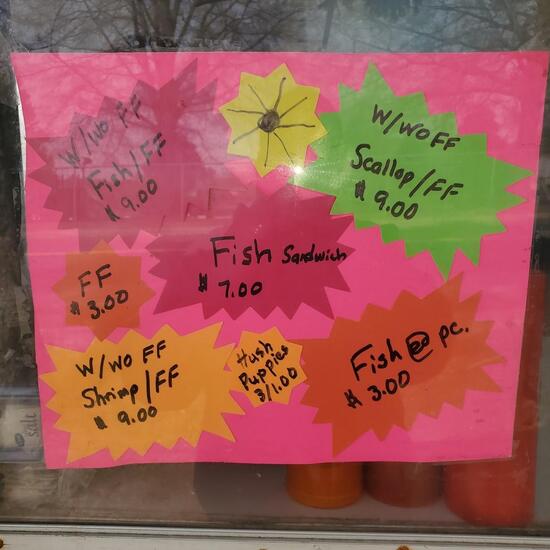 W/wo FF
Fish/FF
$ 9.00
W/wo FF
Scallop/FF
$ 9.00
Fish Sandwich
$ 7.00
FF
$ 3.00
W/wo FF
Shrimp/FF
$ 9.00
Hush
Puppies
3/1.00
Fish @ pc.
$ 3.00
Sale